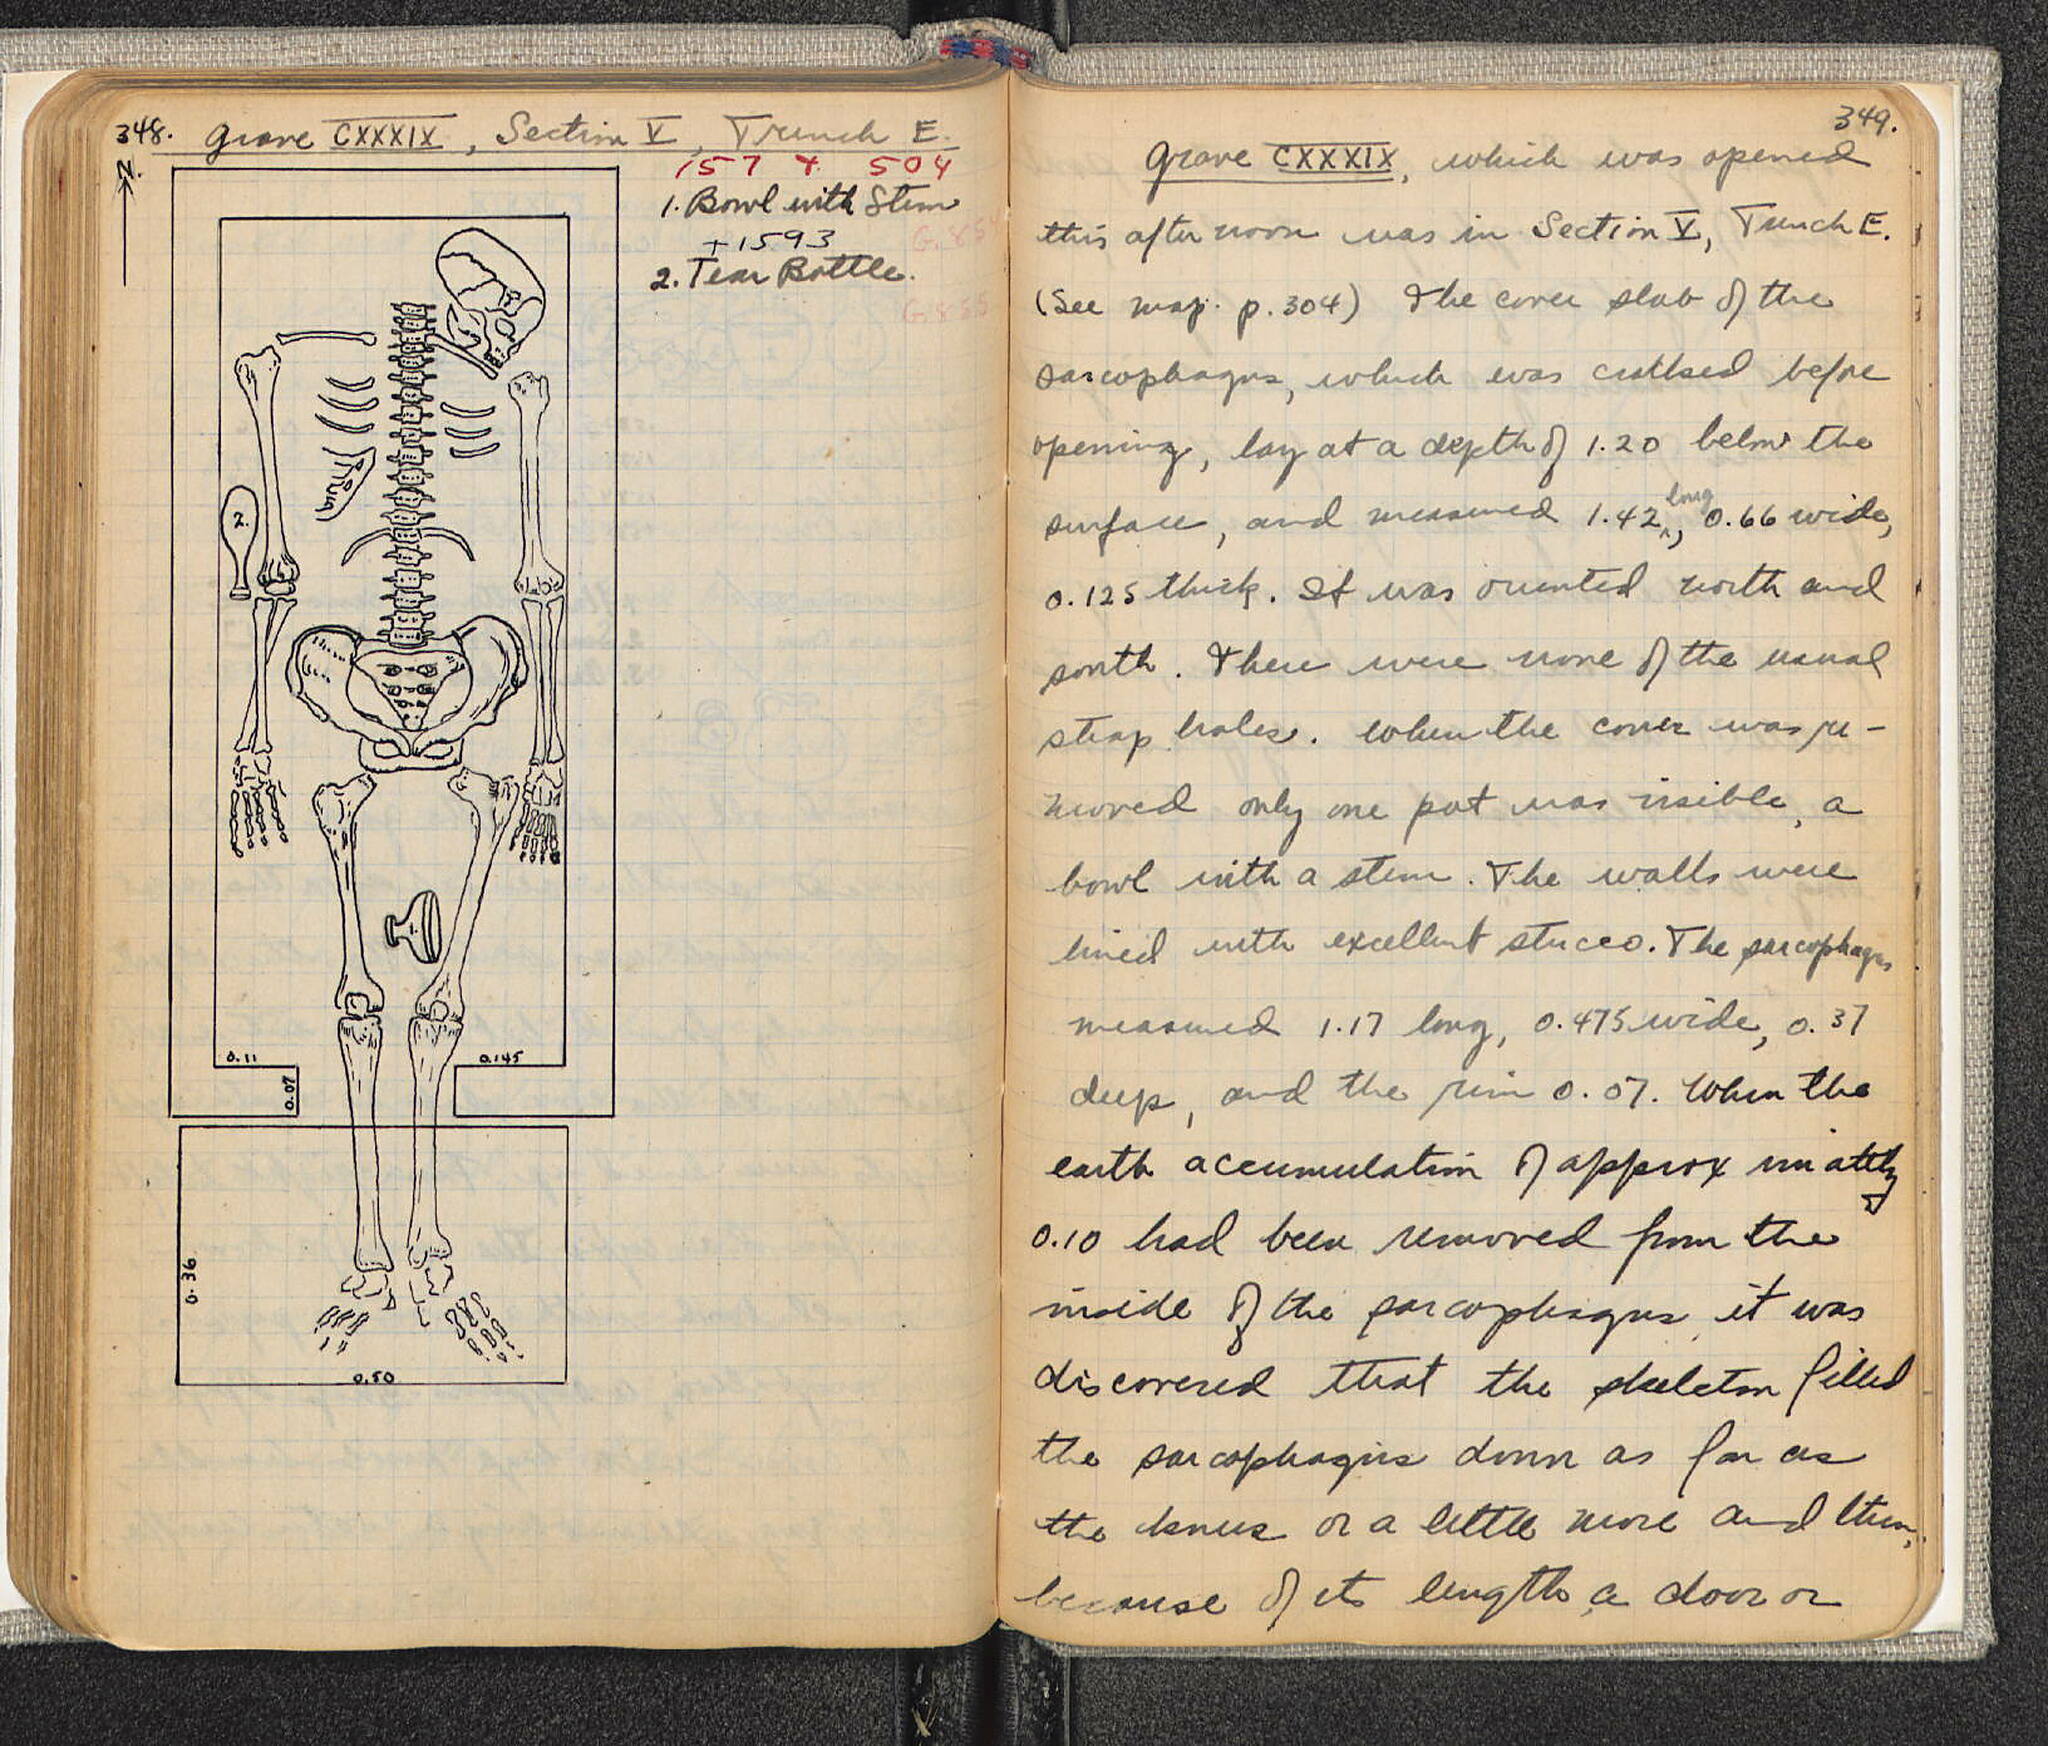 348. Grave CXXXIX, Section V, Trench E.
N.
157 X 504
1. Bowl with Stem
+1593
G.854
2. Tear Bottle.
G.855
2.
0.11
0.07
0.145
0.36
0.50
349.
Grave CXXXIX, which was opened
this afternoon was in Section V, Trench E.
(See map. p. 304) The cover slab of the
sarcophagus, which was crushed before
opening, lay at a depth of 1.20 below the
surface, and measured 1.42 long, 0.66 wide,
0.125 thick. It was oriented north and
south. There were none of the usual
strap holes. When the cover was re-
moved only one pot was visible, a
bowl with a stem. The walls were
lined with excellent stucco. The sarcophagus
measured 1.17 long, 0.475 wide, 0.37
deep, and the rim 0.07. When the
earth accumulation of approximately
0.10 had been removed from the
inside of the sarcophagus it was
discovered that the skeleton filled
the sarcophagus down as far as
the knees or a little more and then,
because of its length, a door or